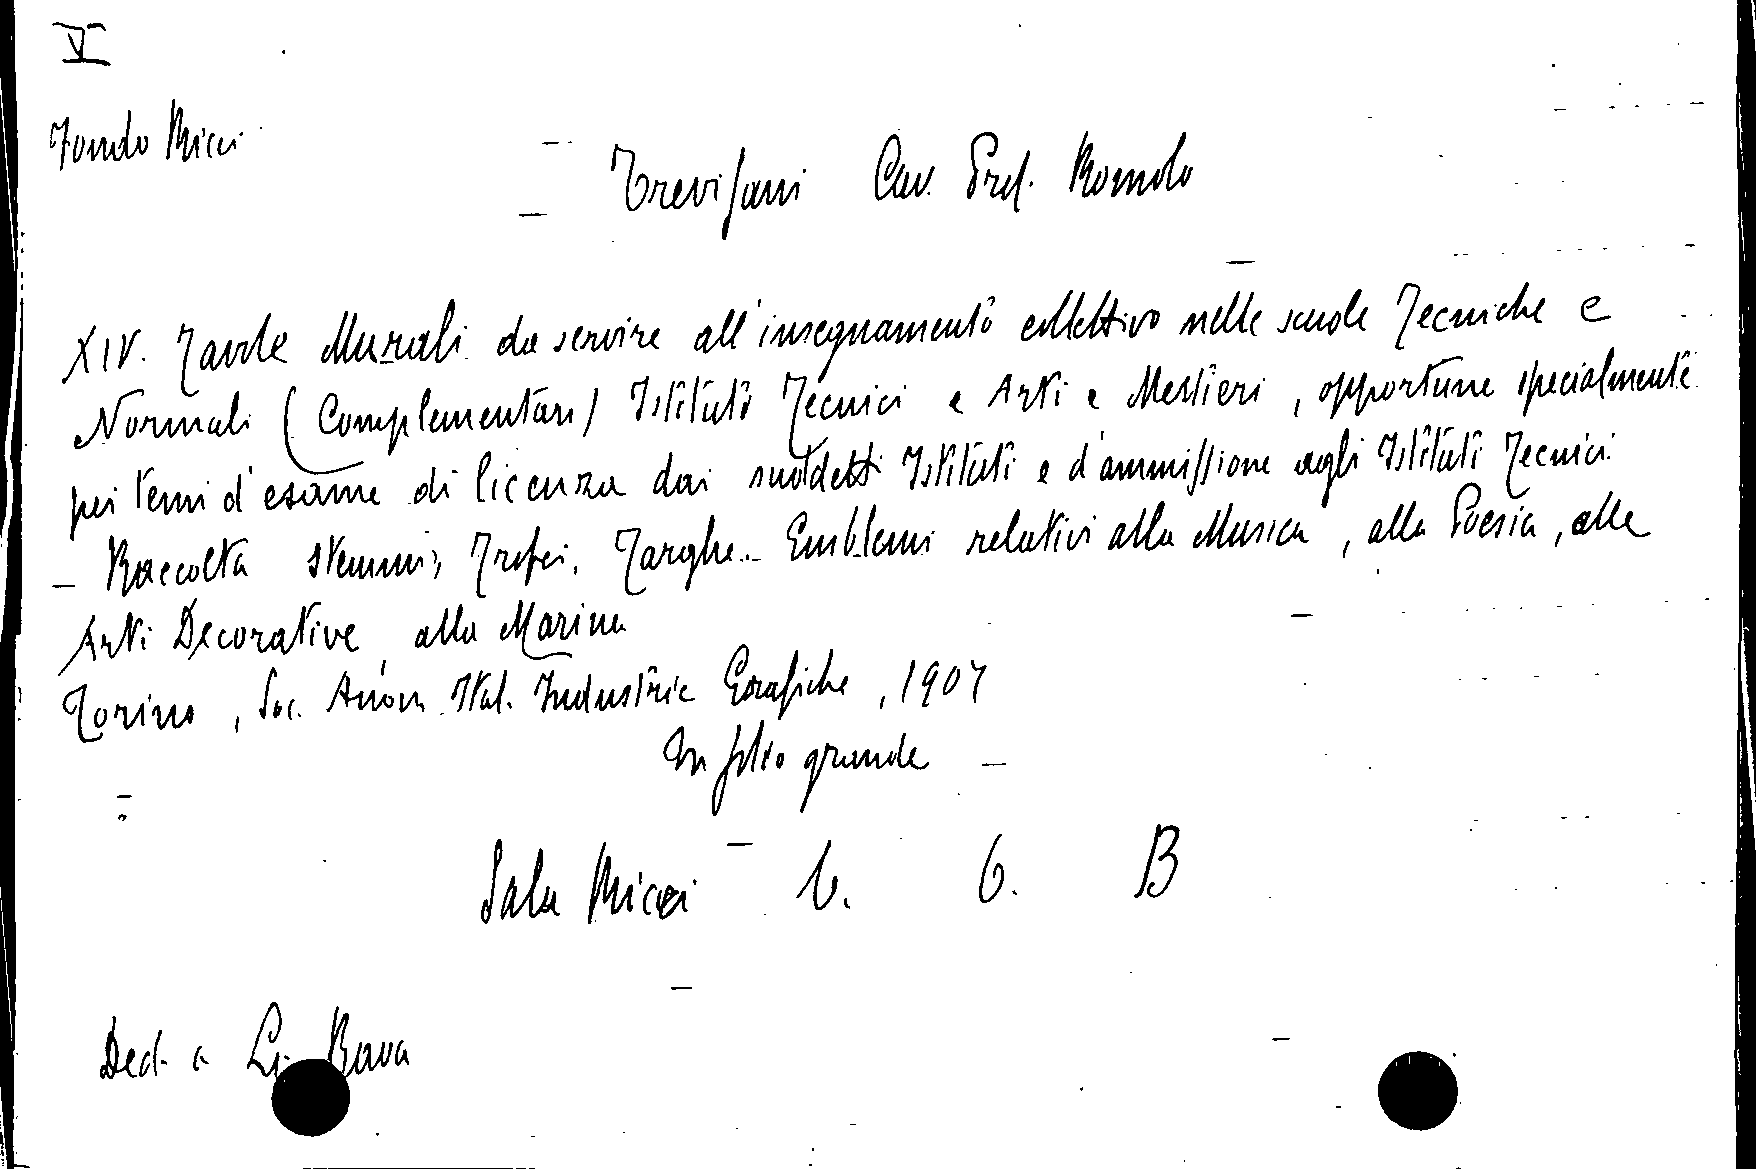 V
Fondo Ricci
Trevisani Cav. Prof. Romolo
XIV. Tavole Murali da servire all'insegnamento collettivo nelle scuole Tecniche e
Normali (Complementari) Istituti Tecnici e Arti e Mestieri, opportune specialmente
pei temi d'esame di licenza dai suddetti Istituti e d'ammissione agli Istituti Tecnici
- Raccolta stemmi, Trofei, Targhe - Emblemi relativi alla Musica, alla Poesia, alle
Arti Decorative, alla Marina
Torino, Soc. Anon. Ital. Industrie Grafiche, 1907
In folio grande
Sala Ricci 6. B
Ded. a Bava